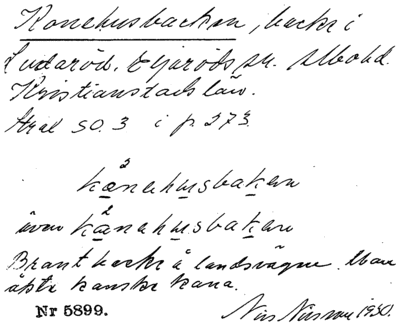 Konehusbacken, backe i
Ludaröd, Eljaröds sn. Albo hd.
Kristianstads län.
Ark SO. 3 i p. 273.
kånahusbakan
även kånahusbakan
Brant backe å landsvägen. Man
åkte kanske kana.
Nr 5899. Nils Nilsson 1930.